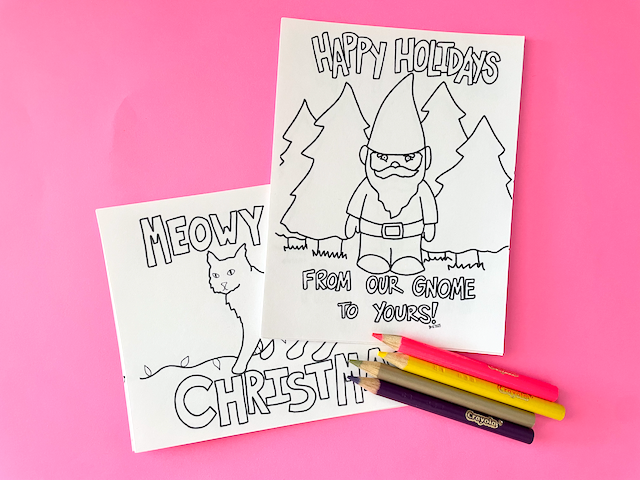 HAPPY HOLIDAYS
FROM OUR GNOME
TO YOURS!
MEOWY
CHRISTMA
Crayola
Crayola